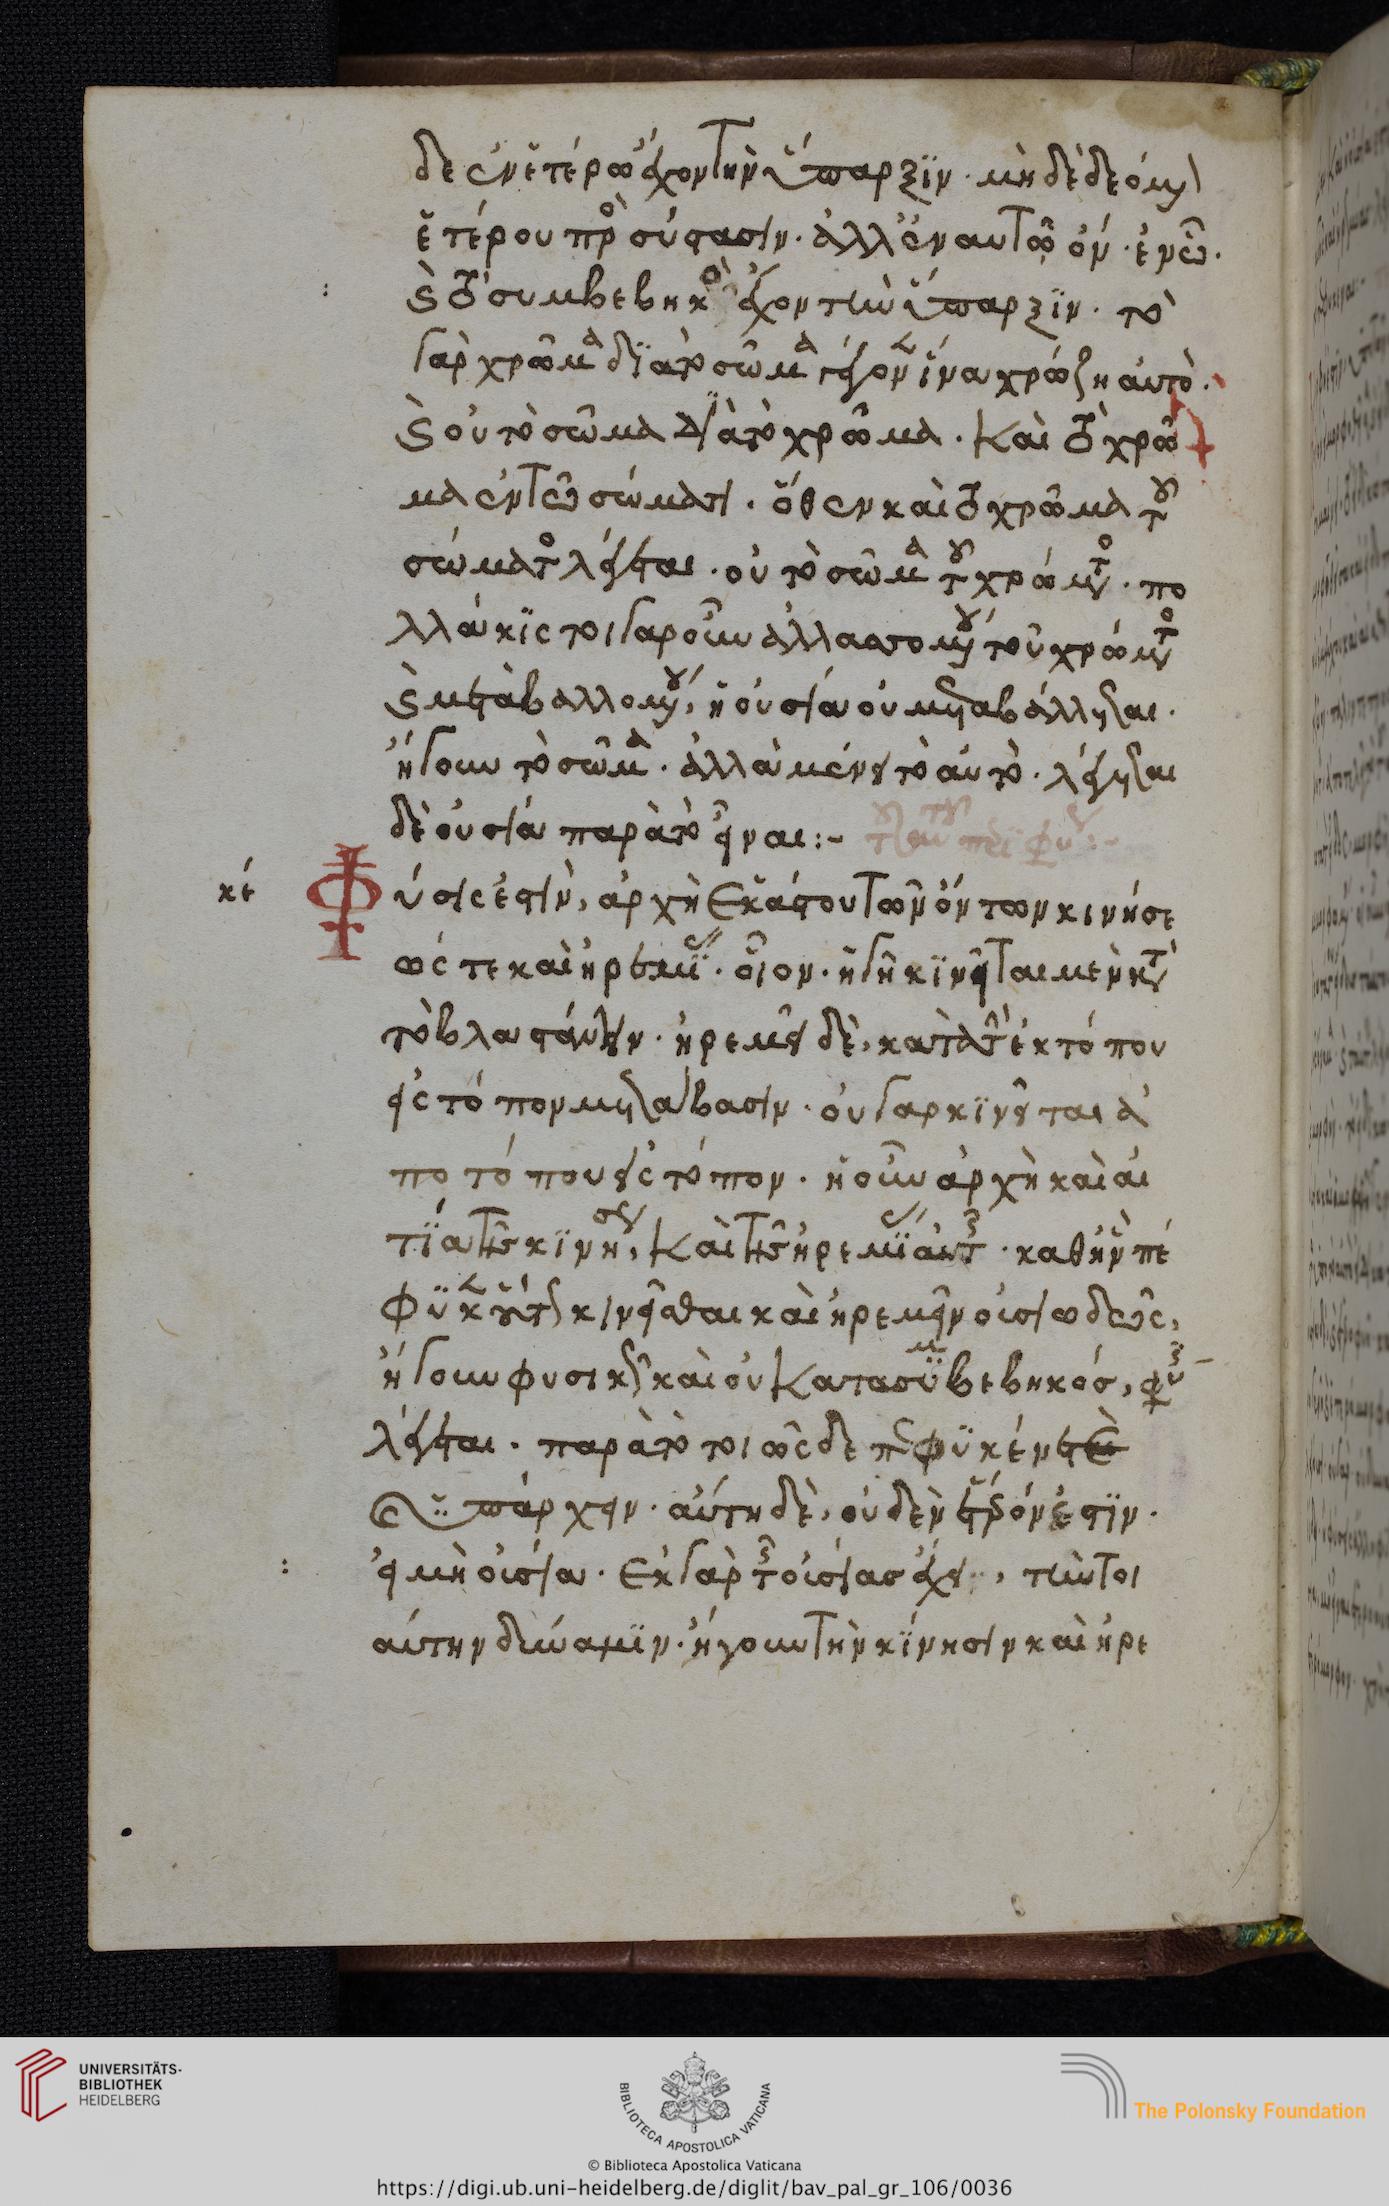 δὲ ἐν ἑτέρω ἔχον τὴν ὕπαρξϊν · μὴ δὲ δεόμ(εν)
ἑτέρου πρὸ(ς) σύστασιν · ἀλλ' ἐν αυτῶ ὂν · ἐν ὧ ·
(καὶ) τὸ συμβεβηκὸ(ς) ἔχον τὴν ὕπαρξϊν · τὸ
γὰρ χρῶμα δϊὰ τὸ σῶμα γέγον(εν) ἵνα χρώζη αυτὸ ·
(καὶ) οὐ τὸ σῶμα διὰ τὸ χρῶμα · καὶ τὸ χρῶ
μα ἐν τῶ σώματι · ὅθεν καὶ τὸ χρῶμα τοῦ
σώματο(ς) λέγεται · οὐ τὸ σῶμα τοῦ χρώμ(α)το(ς) · πο
λλάκϊς τοιγαροῦν ἀλλασσομ(έν)ου τοῦ χρώμ(α)το(ς)
(καὶ) μεταβαλλομ(έν)ου, ἡ οὐσία οὐ μεταβάλλεται ·
ἤγουν τὸ σῶμα · ἀλλὰ μένει τὸ αὐτὸ · λέγεται
δὲ οὐσία παρὰ τὸ εἶναι :-
κε Φύσις ἐστὶν, ἀρχὴ ἑκάστου τῶν ὄντων κινήσε
ώς τε καὶ ἠρεμί(ας) · οἷον · ἡ γῆ κϊνεῖται μὲν κ(α)τὰ
τὸ βλαστάνειν · ἠρεμεῖ δὲ, κατὰ τὴν ἐκ τόπου
εἰς τόπον μετάβασιν · οὐ γὰρ κϊνεῖται ἀ
πὸ τόπου εἰς τόπον · ἡ οὖν ἀρχὴ καὶ αἰ
τία τῆς κϊνήσε(ως), καὶ τῆς ἠρεμί(ας) αὐτῆς · καθ' ἣν πέ
φϋκεν οὕτως κινεῖσθαι καὶ ἠρεμεῖν οὐσιωδῶς,
ἤγουν φυσικῶς καὶ οὐ κατασυμβεβηκός, φύσις
λέγεται · παρὰ τὸ τοιῶςδε πεφϋκέναι τε
(καὶ) ὑπάρχειν · αὕτη δὲ, οὐδὲν ἕτερόν ἐστϊν ·
εἰ μὴ οὐσία · ἐκ γὰρ τῆς οὐσίας ἔχει, τὴν τοι
αύτην δύναμϊν · ἤγουν τὴν κίνησιν καὶ ἠρε
UNIVERSITÄTS-
BIBLIOTHEK
HEIDELBERG
BIBLIOTECA APOSTOLICA VATICANA
© Biblioteca Apostolica Vaticana
The Polonsky Foundation
https://digi.ub.uni-heidelberg.de/diglit/bav_pal_gr_106/0036